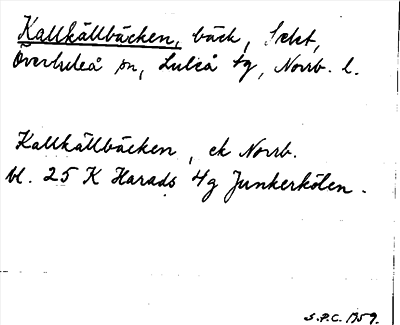 Kallkällbäcken, bäck,
Överluleå sn, Luleå tg, Norrb. l.
Kallkällbäcken, ek Norrb.
bl. 25 K Harads 4g Junkerkölen.
S.P.C. 1959.